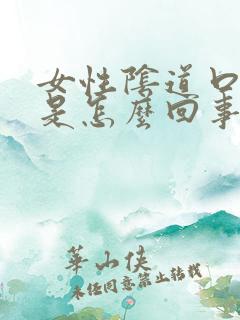 女性陰道口
是怎麼回事
華山俠
未经同意禁止转载